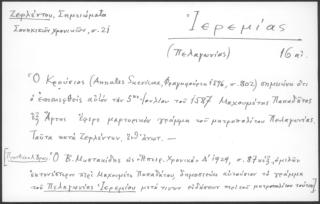 Ζερλέντου, Σημειώματα
Συνοικικῶν χρονικῶν, σ. 21
Ἱερεμίας
(Πελαγωνίας) 16 αἰ.
Ὁ Κρούσιος (Annales Suevicae, Φραγκφούρτη 1596, σ. 802) σημειώνει ὅτι
ὁ ἐπισκεφθεὶς αὐτὸν τὴν 5ην Ἰουλίου τοῦ 1587 Μαχουμέτης Παπαδᾶτος
ἐξ Ἄρτης ἔφερε μαρτυρικὸν γράμμα τοῦ μητροπολίτου Πελαγωνίας.
Ταῦτα κατὰ Ζερλέντην, ἔνθ' ἀνωτ. —
Ὁ Β. Μυστακίδης ὡς Ἠπειρ. Χρονικὰ Δ' 1929, σ. 87 κἑξ, ὁμιλῶν
ἐκτενέστερον περὶ Μαχουμέτη Παπαδάτου, δημοσιεύει αὐτούσιον τὸ γράμμα
τοῦ Πελαγωνίας Ἱερεμίου μετά τινων εἰδήσεων περὶ τοῦ μητροπολίτου τούτου]